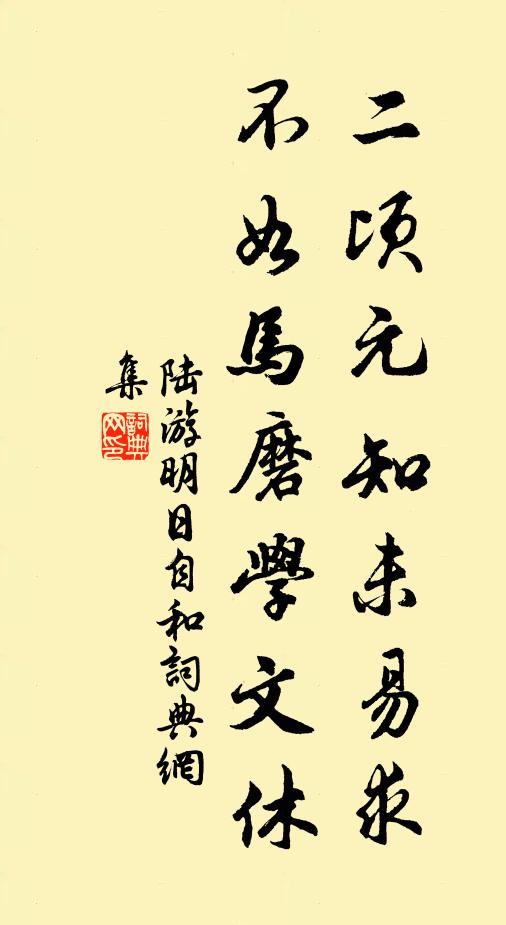 二頃元知未易求
不如馬磨學文休
陆游明日自和詞典網
集
詞典網印